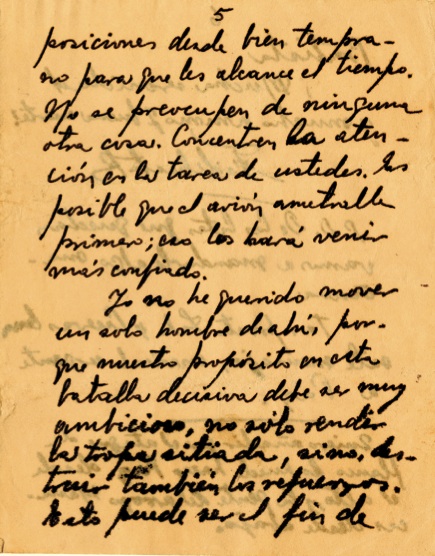 5
posiciones desde bien tempra-
no para que les alcance el tiempo.
No se preocupen de ninguna
otra cosa. Concentren la aten-
ción en la tarea de ustedes. Es
posible que el avión ametralle
primero; eso los hará venir
más confiado.
Yo no he querido mover
un solo hombre de ahí, por-
que nuestro propósito en esta
batalla decisiva debe ser muy
ambicioso, no sólo rendir
la tropa sitiada, sino, des-
truir también los refuerzos.
Esto puede ser el fin de